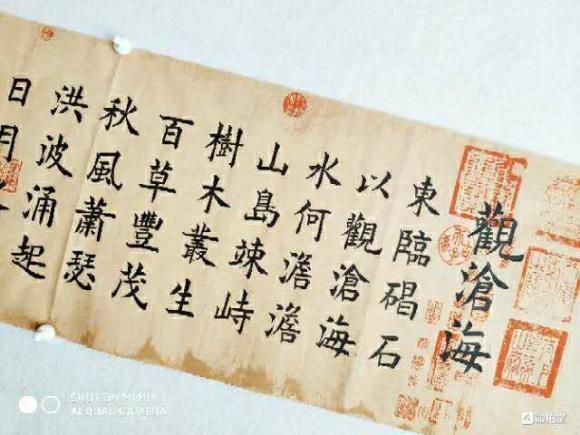 觀滄海
東臨碣石
以觀滄海
水何澹澹
山島竦峙
樹木叢生
百草豐茂
秋風蕭瑟
洪波涌起
日月
SHOT ON MI MIX 2
AI DUAL CAMERA